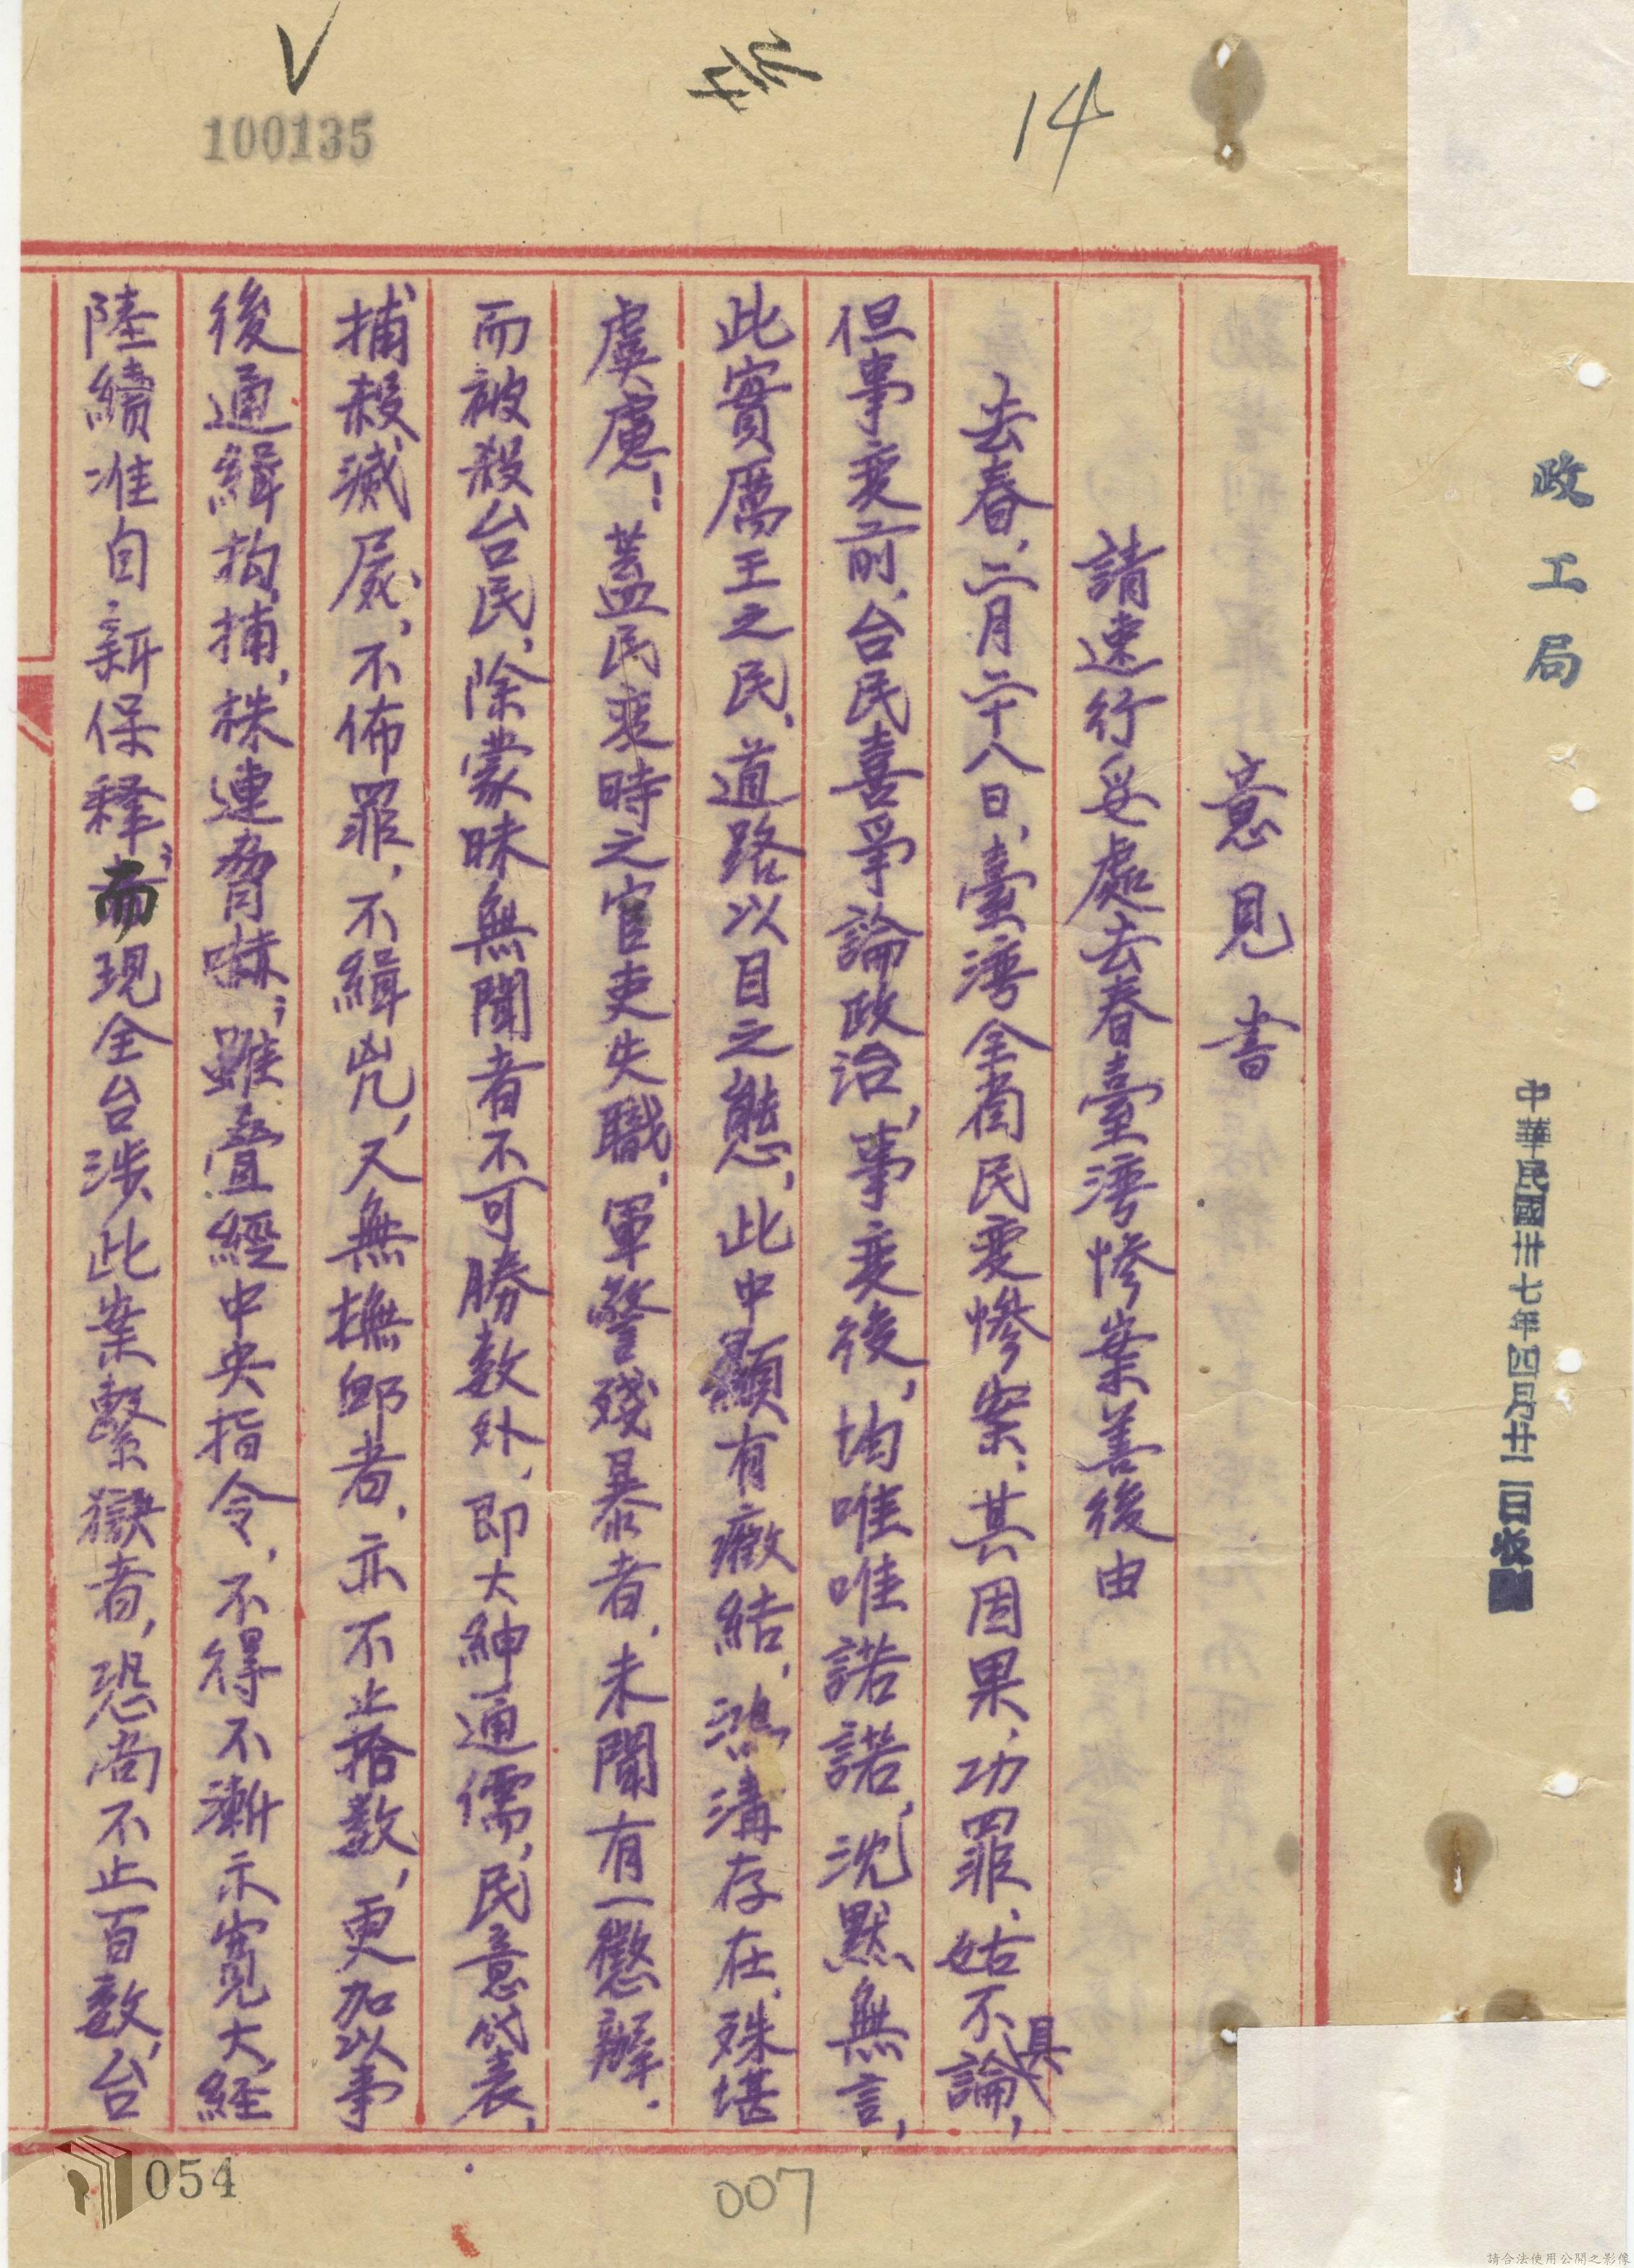 14
存
100135
政工局
中華民國卅七年四月廿二日收
意見書
請速行妥處去春臺灣慘案善後由
去春,二月二十八日,臺灣全省民變慘案、其因果、功罪、姑不具論,
但事变前、台民喜爭論政治,事变後,均唯唯諾諾,沈默無言,
此實厲王之民、道路以目之態,此中顯有癥結,鴻溝存在、殊堪
虞慮!蓋民变時之官吏失職,軍警殘暴者,未聞有一懲辦.
而被殺台民,除蒙昧無聞者不可勝数外、即大紳通儒,民意代表,
捕殺滅屍,不佈罪,不緝兇,又無撫卹者,亦不止拾数,更加以事
後通緝拘捕,株連脅嚇;雖叠經中央指令,不得不漸示寬大,経
陸續准自新保釋;而現全台涉此案繫獄者,恐尚不止百数,台
054
007
請合法使用公開之影像